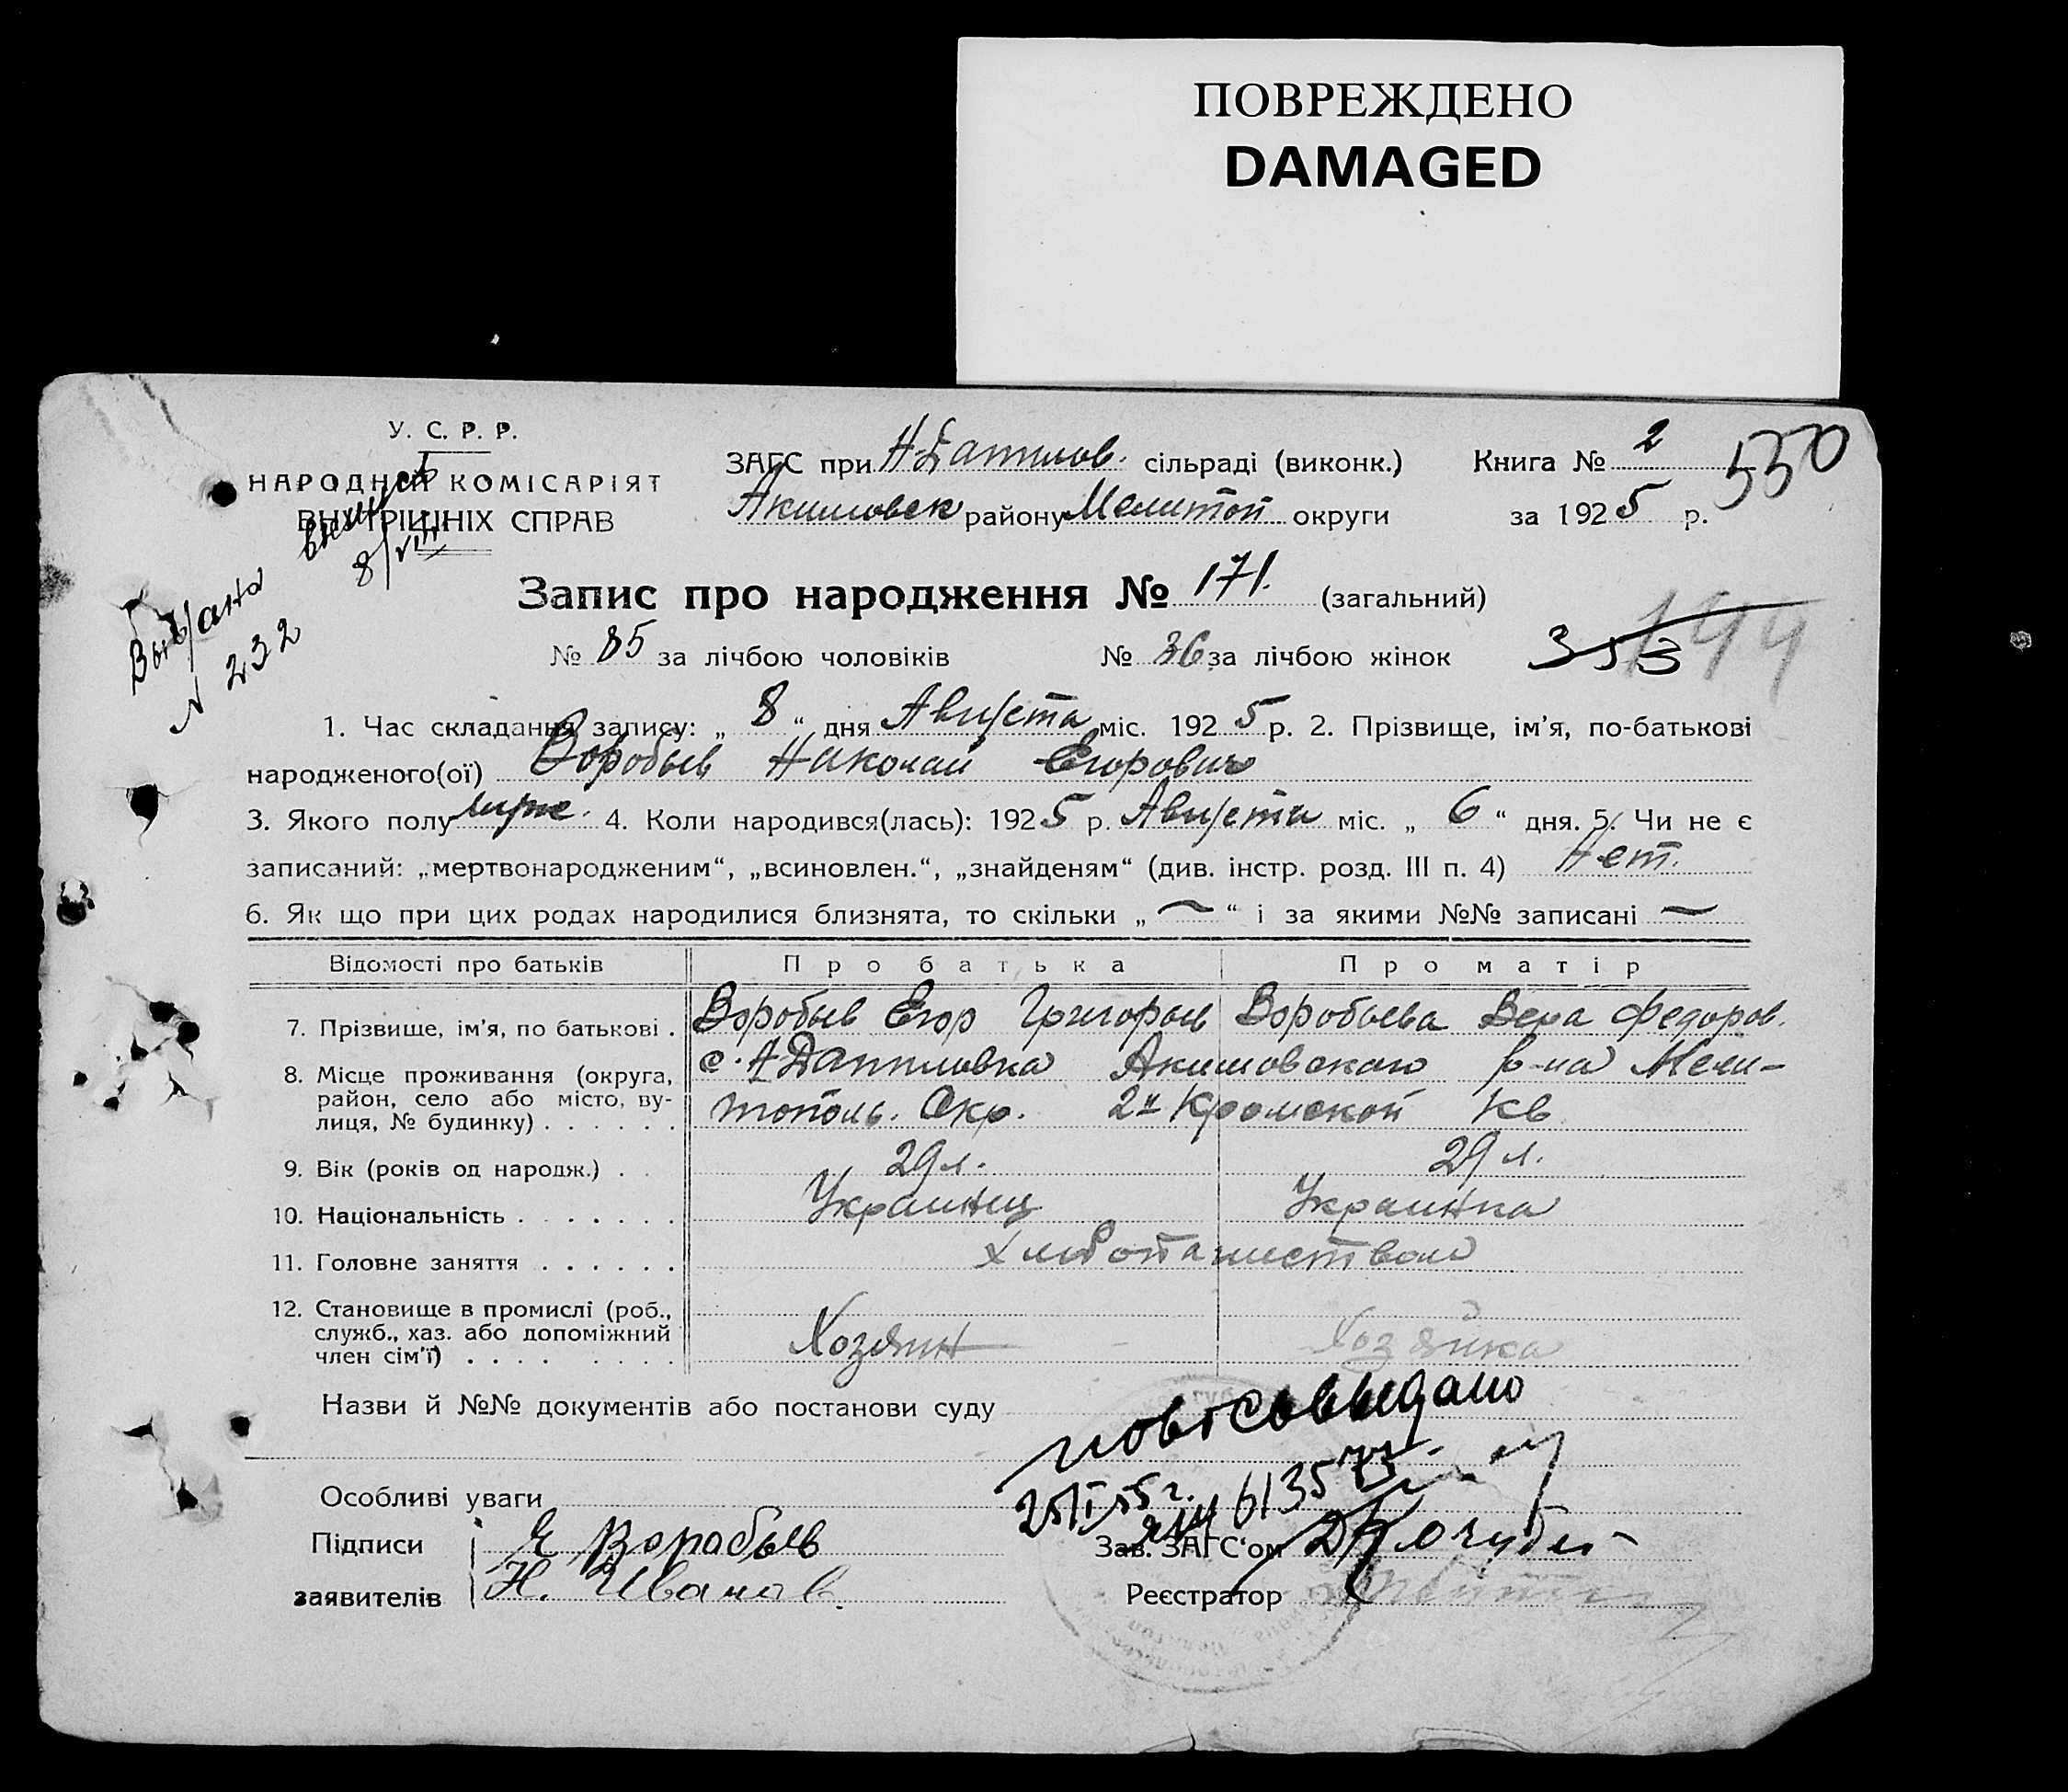 ПОВРЕЖДЕНО
DAMAGED
У. С. Р. Р.
НАРОДНІЙ КОМІСАРІЯТ
ВНУТРІШНІХ СПРАВ
ЗАГС при сільраді (виконк.) Книга № 2 550
Акимовск району Мелитоп округи за 1925 р.
Выдана выпись
8/VIII
N 232
Запис про народження № 171. (загальний)
№ 85 за лічбою чоловіків № 36 за лічбою жінок 353 144
1. Час складання запису: „ 8 “ дня Августа міс. 1925 р. 2. Прізвище, ім’я, по-батькові
народженого(ої) Воробьев Николай Егорович
3. Якого полу муж. 4. Коли народився(лась): 1925 р. Августа міс. „ 6 “ дня. 5. Чи не є
записаний: „мертвонародженим“, „всиновлен.“, „знайденям“ (див. інстр. розд. III п. 4) Нет.
6. Як що при цих родах народилися близнята, то скільки „ — “ і за якими №№ записані —
Відомості про батьків Про батька Про матір
7. Прізвище, ім’я, по батькові . Воробьев Егор Григорьев Воробьева Вера Федоров.
8. Місце проживання (округа, район, село або місто, ву-
лиця, № будинку) . . . . . .
с. Акимовского р-на Мели-
тополь. Окр. 2й Кромской Кв
9. Вік (років од народж.) . 29 л. 29 л.
10. Національність . . . . . . . Украинец Украинка
11. Головне заняття . . . . . . Хлебопашеством
12. Становище в промислі (роб.,
служб., хаз. або допоміжний
член сім’ї) . . . .
Хозяин Хозяйка
Назви й №№ документів або постанови суду
повт св выдано
Особливі уваги 25/I 55 г. 613573
Підписи Е Воробьев Зав. ЗАГС‘ом Кочубей
заявителів Н. Иванов. Реєстратор